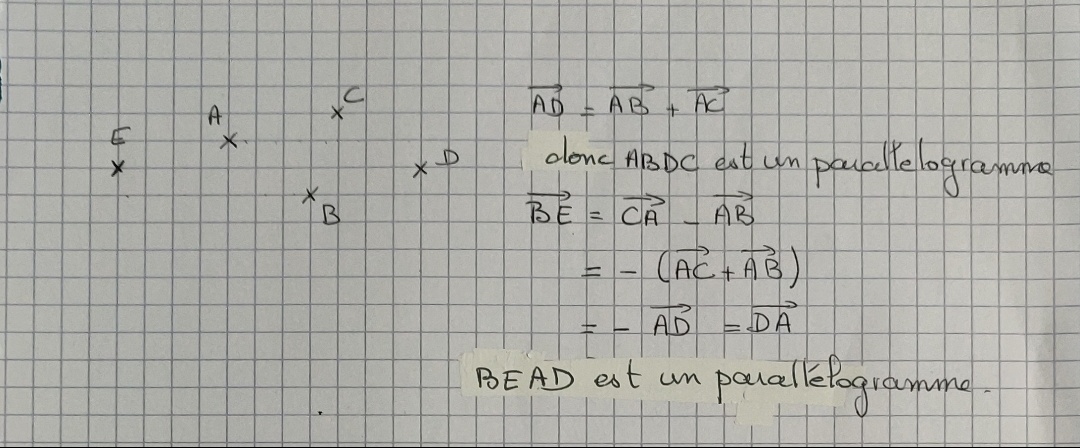 E
A
C
D
B
AD⃗ = AB⃗ + AC⃗
donc ABDC est un parallelogramme
BE⃗ = CA⃗ - AB⃗
= - (AC⃗ + AB⃗)
= - AD⃗ = DA⃗
BEAD est un parallélogramme.